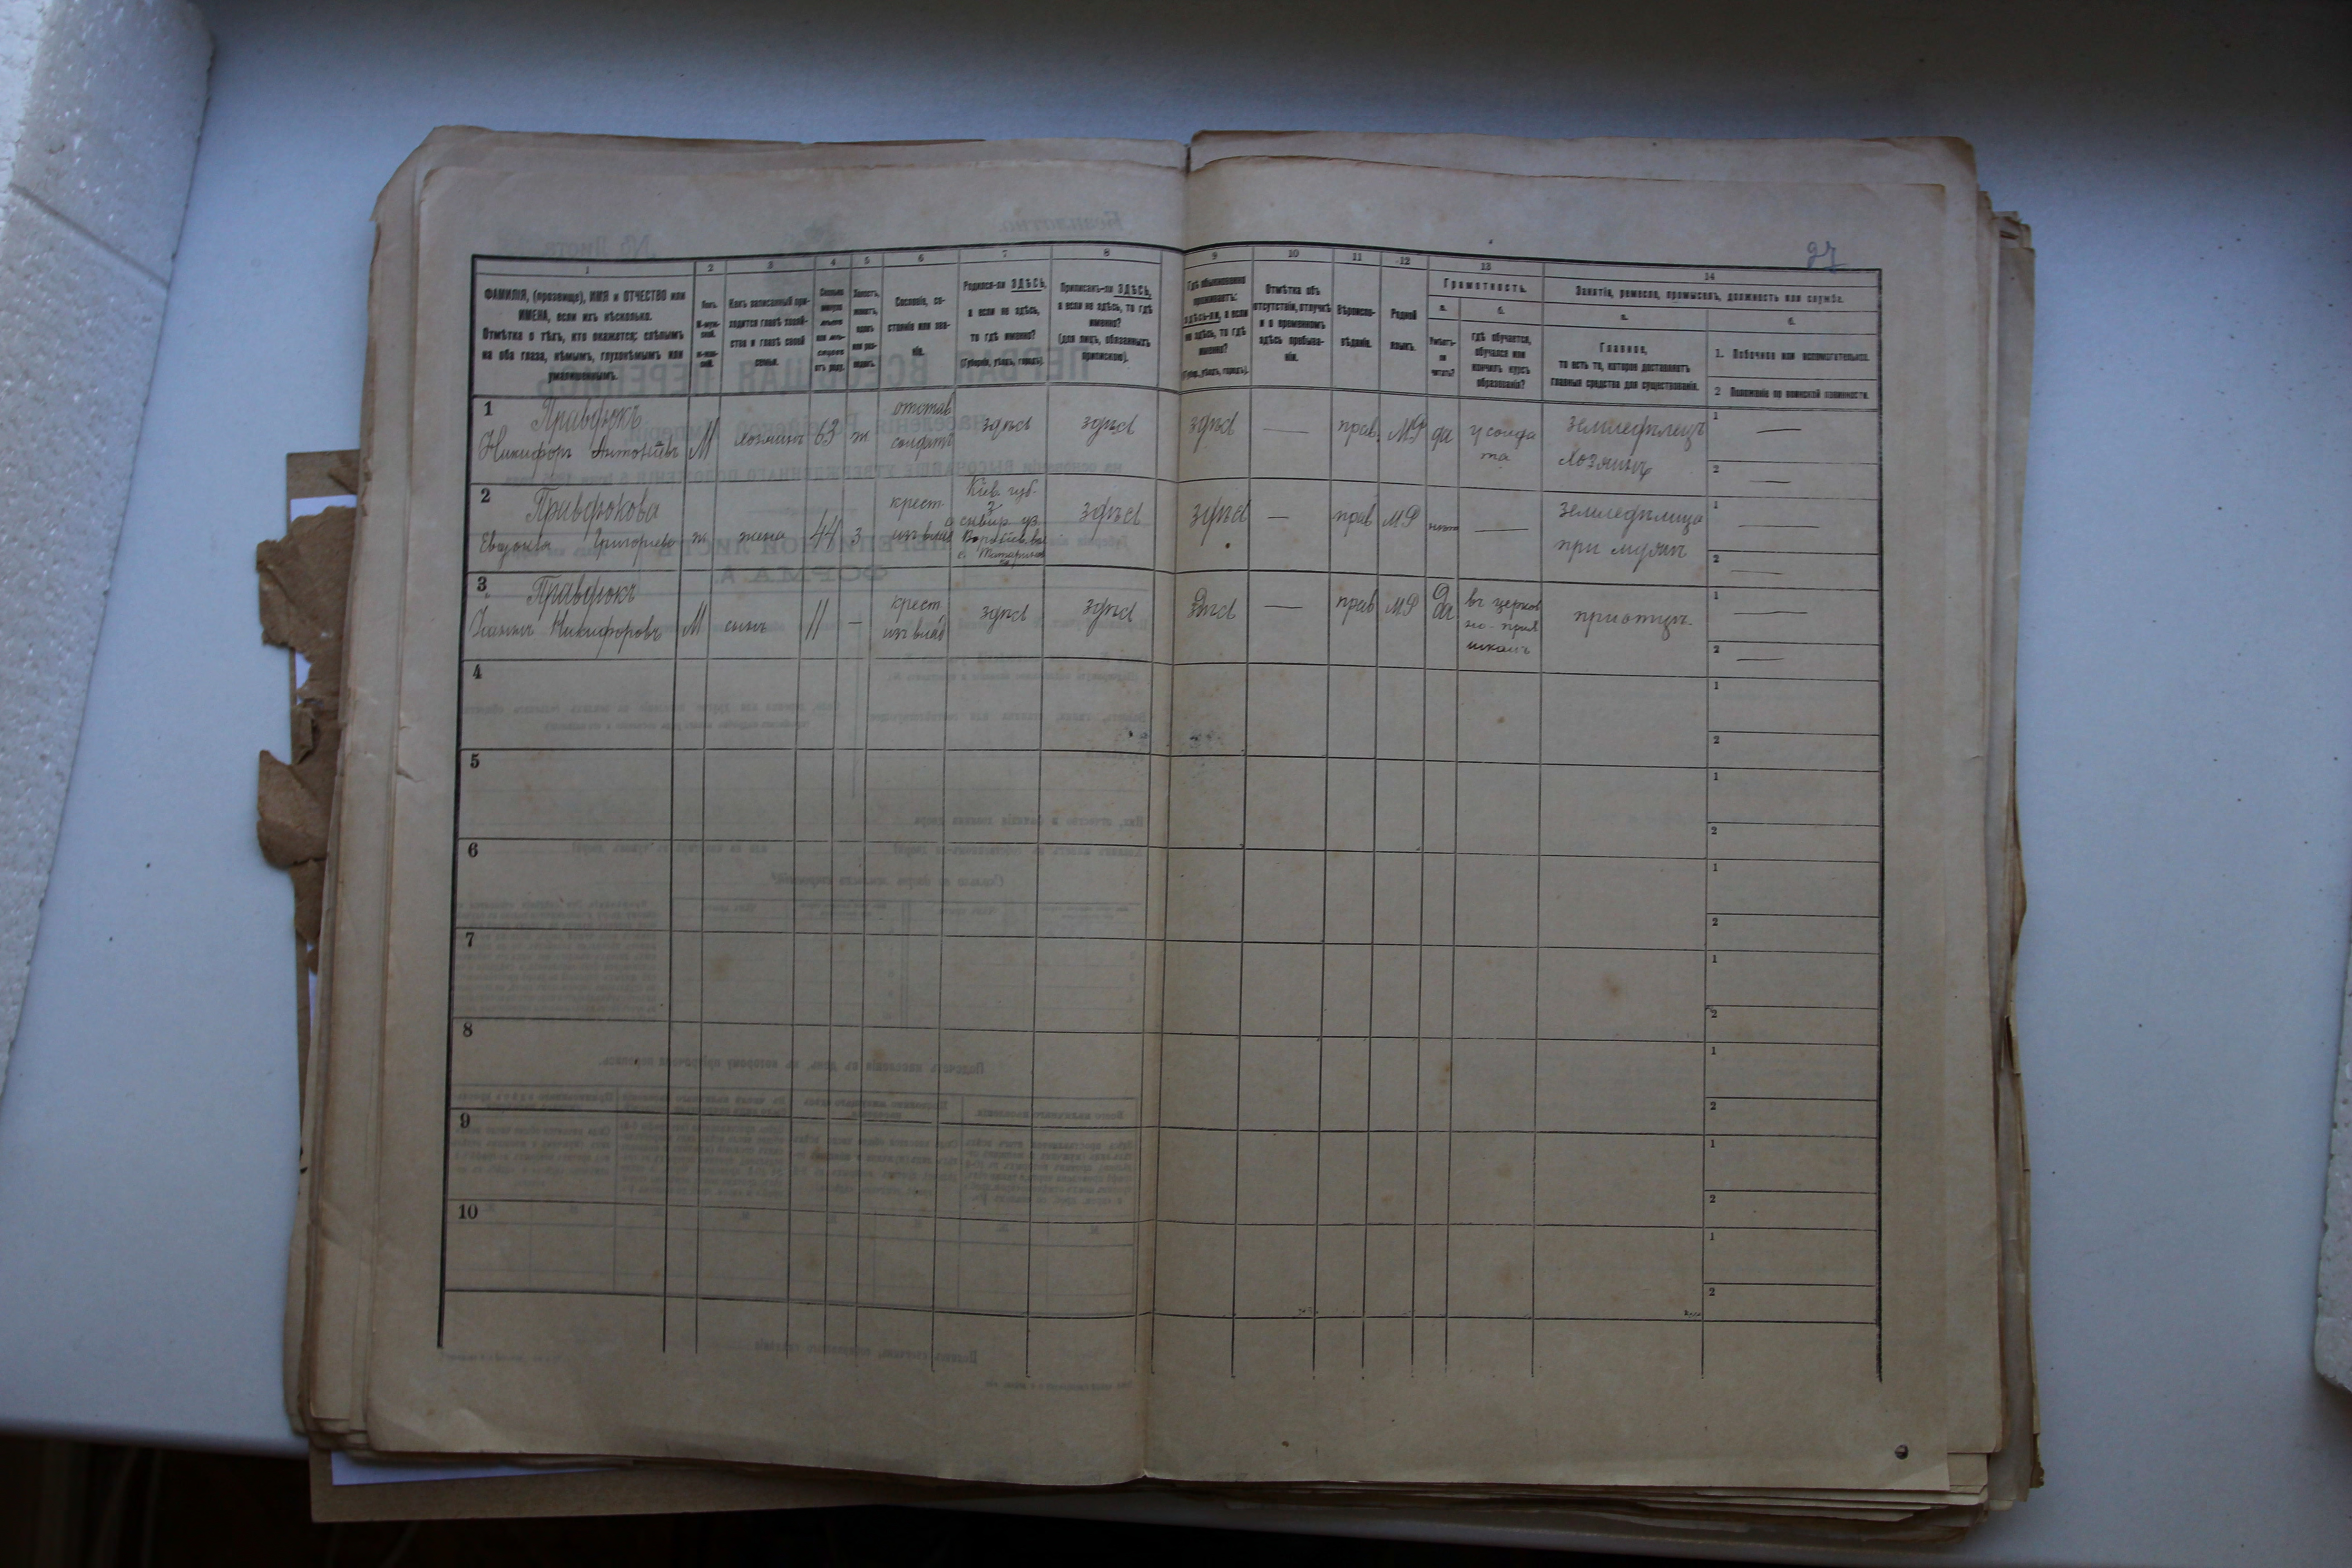 27
1 2 3 4 5 6 7 8 9 10 11 12 13 14
ФАМИЛІЯ, (прозвище), ИМЯ и ОТЧЕСТВО или
ИМЕНА, если ихъ нѣсколько.
Отмѣтка о тѣхъ, кто окажется: слѣпымъ
на оба глаза, нѣмымъ, глухонѣмымъ или
умалишеннымъ.
Полъ.
Какъ записанный при-
ходится главѣ хозяй-
ства и главѣ своей
семьи.
Сословіе, со-
стояніе или зва-
ніе.
Родился-ли ЗДѢСЬ,
а если не здѣсь,
то гдѣ именно?
(Губернія, уѣздъ, городъ).
Приписанъ-ли ЗДѢСЬ,
а если не здѣсь, то гдѣ
именно?
(для лицъ, обязанныхъ
припискою).
Гдѣ обыкновенно
проживаетъ:
здѣсь-ли, а если
не здѣсь, то гдѣ
именно?
(Губ., уѣздъ, городъ).
Отмѣтка объ
отсутствіи, отлучкѣ
и о временномъ
здѣсь пребыва-
ніи.
Вѣроиспо-
вѣданіе.
Родной
языкъ.
Грамотность.
а.
Умѣетъ-
ли
читать?
б.
гдѣ обучается,
обучался или
кончилъ курсъ
образованія?
Занятіе, ремесло, промыселъ, должность или служба.
а.
Главное,
то есть то, которое доставляетъ
главныя средства для существованія.
б.
1. Побочное или вспомогательное.
2 Положеніе по воинской повинности.
1 Правдюкъ
Никифоръ Антоніевъ М хозяинъ 63 ж
отстав
солдатъ
здѣсь здѣсь здѣсь — прав. МР да
у солда
та
земледѣлецъ
хозяинъ
1 —
2 —
2 Правдюкова
Евдокія Григорьева ж жена 44 з
крест.
из влад
Кіев. губ.
сквир уз.
здѣсь здѣсь — прав МР —
земледѣлица
при мужѣ
1 —
2 —
3 Правдюкъ
Никифоровъ М сынъ 11 —
крест
из влад
здѣсь здѣсь здѣсь — прав МР да
въ церков
но-прих
школѣ
при отцѣ.
1 —
2 —
4 1
2
5 1
2
6 1
2
7 1
2
8 1
2
9 1
2
10 1
2